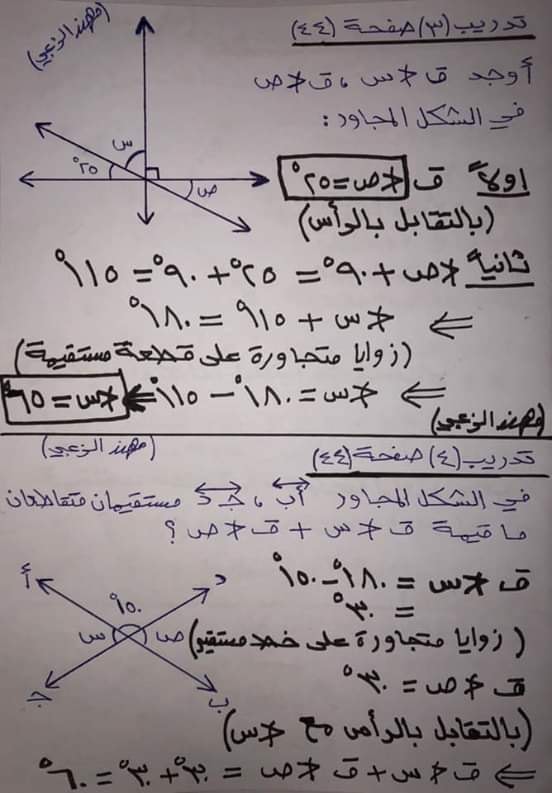 تدريب (٣) صفحة (٤٤)
(مهند الزعبي)
أوجد ق∢س ، ق∢ص
في الشكل المجاور :
س
٢٥°
ص
اولاً ق∢ص = ٢٥°
(بالتقابل بالرأس)
ثانيةً ∢ص + ٩٠° = ٢٥° + ٩٠° = ١١٥°
⇐ ∢س + ١١٥° = ١٨٠°
(زوايا متجاورة على قطعة مستقيمة)
⇐ ∢س = ١٨٠° - ١١٥° ⇐ ∢س = ٦٥°
(مهند الزعبي)
(مهند الزعبي)
تدريب (٤) صفحة (٤٤)
في الشكل المجاور أب ، جـ د مستقيمان متقاطعان
ما قيمة ق∢س + ق∢ص ؟
أ
د
١٥٠°
س
ص
جـ
ب
ق∢س = ١٨٠° - ١٥٠°
= ٣٠°
(زوايا متجاورة على خط مستقيم)
ق∢ص = ٣٠°
(بالتقابل بالرأس مع ∢س)
⇐ ق∢س + ق∢ص = ٣٠° + ٣٠° = ٦٠°